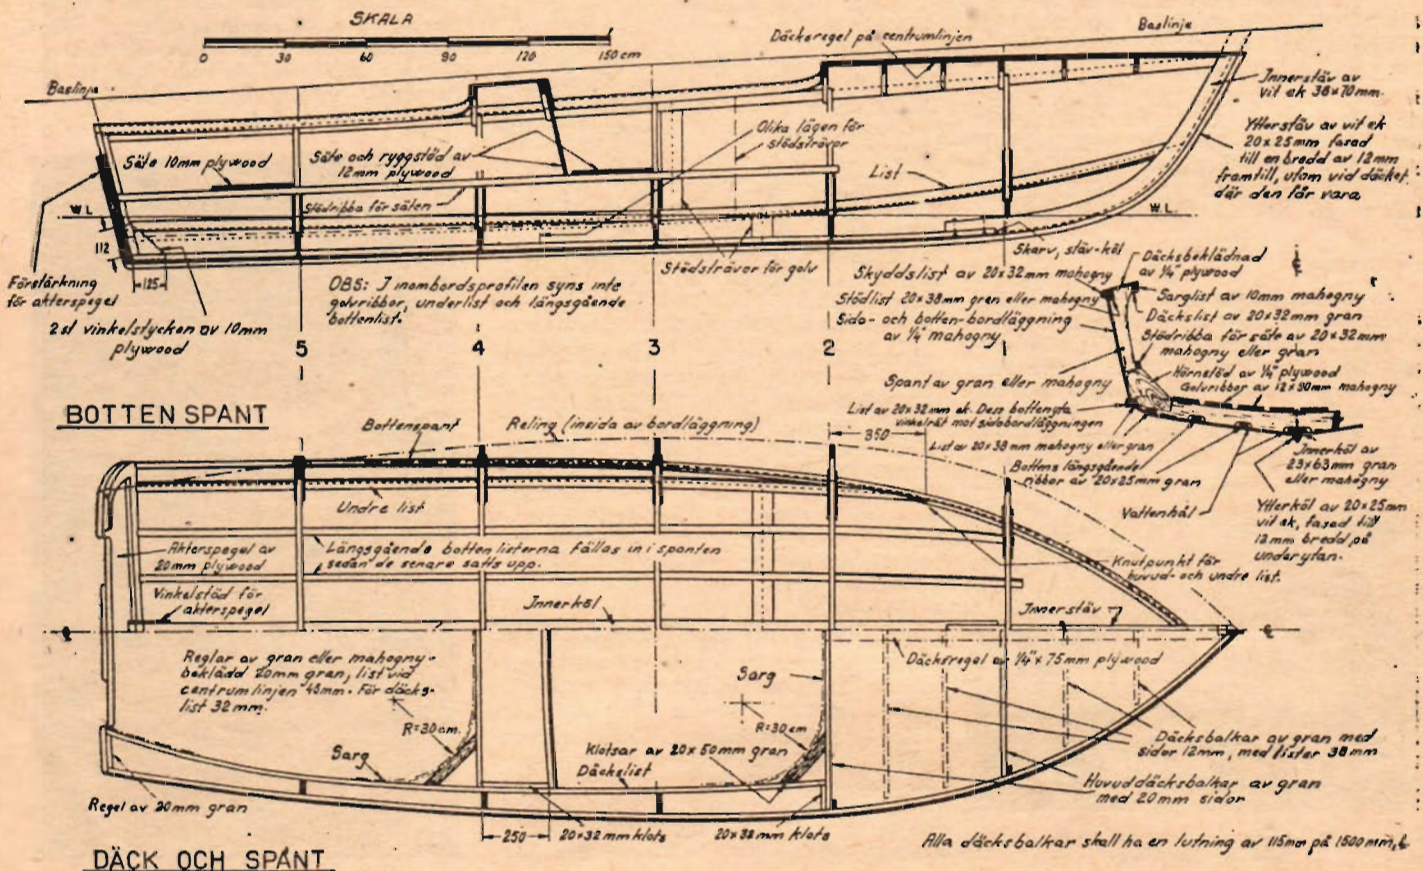 SKALA
0 30 60 90 120 150 cm
Baslinje
Däcksregel på centrumlinjen
Baslinje
Innerstäv av
vit ek 38×70mm.
Ytterstäv av vit ek
20×25mm fasad
till en bredd av 12mm
framtill, utom vid däcket
där den får vara
Säte 10mm plywood
Säte och ryggstöd av
12mm plywood
Olika lägen för
stödsträvor
List
Stödribba för säten
W.L.
W.L.
112
125
Förstärkning
för akterspegel
2 st vinkelstycken av 10mm
plywood
OBS: I inombordsprofilen syns inte
golvribbor, underlist och längsgående
bottenlist.
Stödsträvor för golv
Skarv, stäv-köl
Skyddslist av 20×32mm mahogny
Stödlist 20×38mm gran eller mahogny
Sido- och botten-bordläggning
av ¼" mahogny
Däcksbeklädnad
av ¼" plywood
Sarglist av 10mm mahogny
Däckslist av 20×32mm gran
Stödribba för säte av 20×32mm
mahogny eller gran
Hörnstöd av ¼" plywood
Golvribbor av 12×90mm mahogny
Spant av gran eller mahogny
List av 20×32mm ek. Dess bottenyta
vinkelrät mot sidobordläggningen
List av 20×38mm mahogny eller gran
Bottens längsgående
ribbor av 20×25mm gran
Vattenhål
Innerköl av
23×63mm gran
eller mahogny
Ytterköl av 20×25mm
vit ek, fasad till
12mm bredd på
underytan.
5 4 3 2 1
BOTTEN SPANT
Bottenspant
Reling (insida av bordläggning)
350
Undre list
Akterspegel av
20mm plywood
Längsgående bottenlisterna fällas in i spanten
sedan de senare satts upp.
Vinkelstöd för
akterspegel
Innerköl
Knutpunkt för
huvud- och undre list.
Innerstäv
Reglar av gran eller mahogny-
beklädd 20mm gran, list vid
centrumlinjen 45mm. För däcks-
list 32mm.
R=30cm.
Sarg
Sarg
R=30cm
Klotsar av 20×50mm gran
Däckslist
Däcksregel av ¼"×75mm plywood
Däcksbalkar av gran med
sidor 12mm, med lister 38mm
Huvuddäcksbalkar av gran
med 20mm sidor
Regel av 20mm gran
250
20×32mm klots
20×32mm klots
Alla däcksbalkar skall ha en lutning av 115mm på 1500mm,
DÄCK OCH SPANT